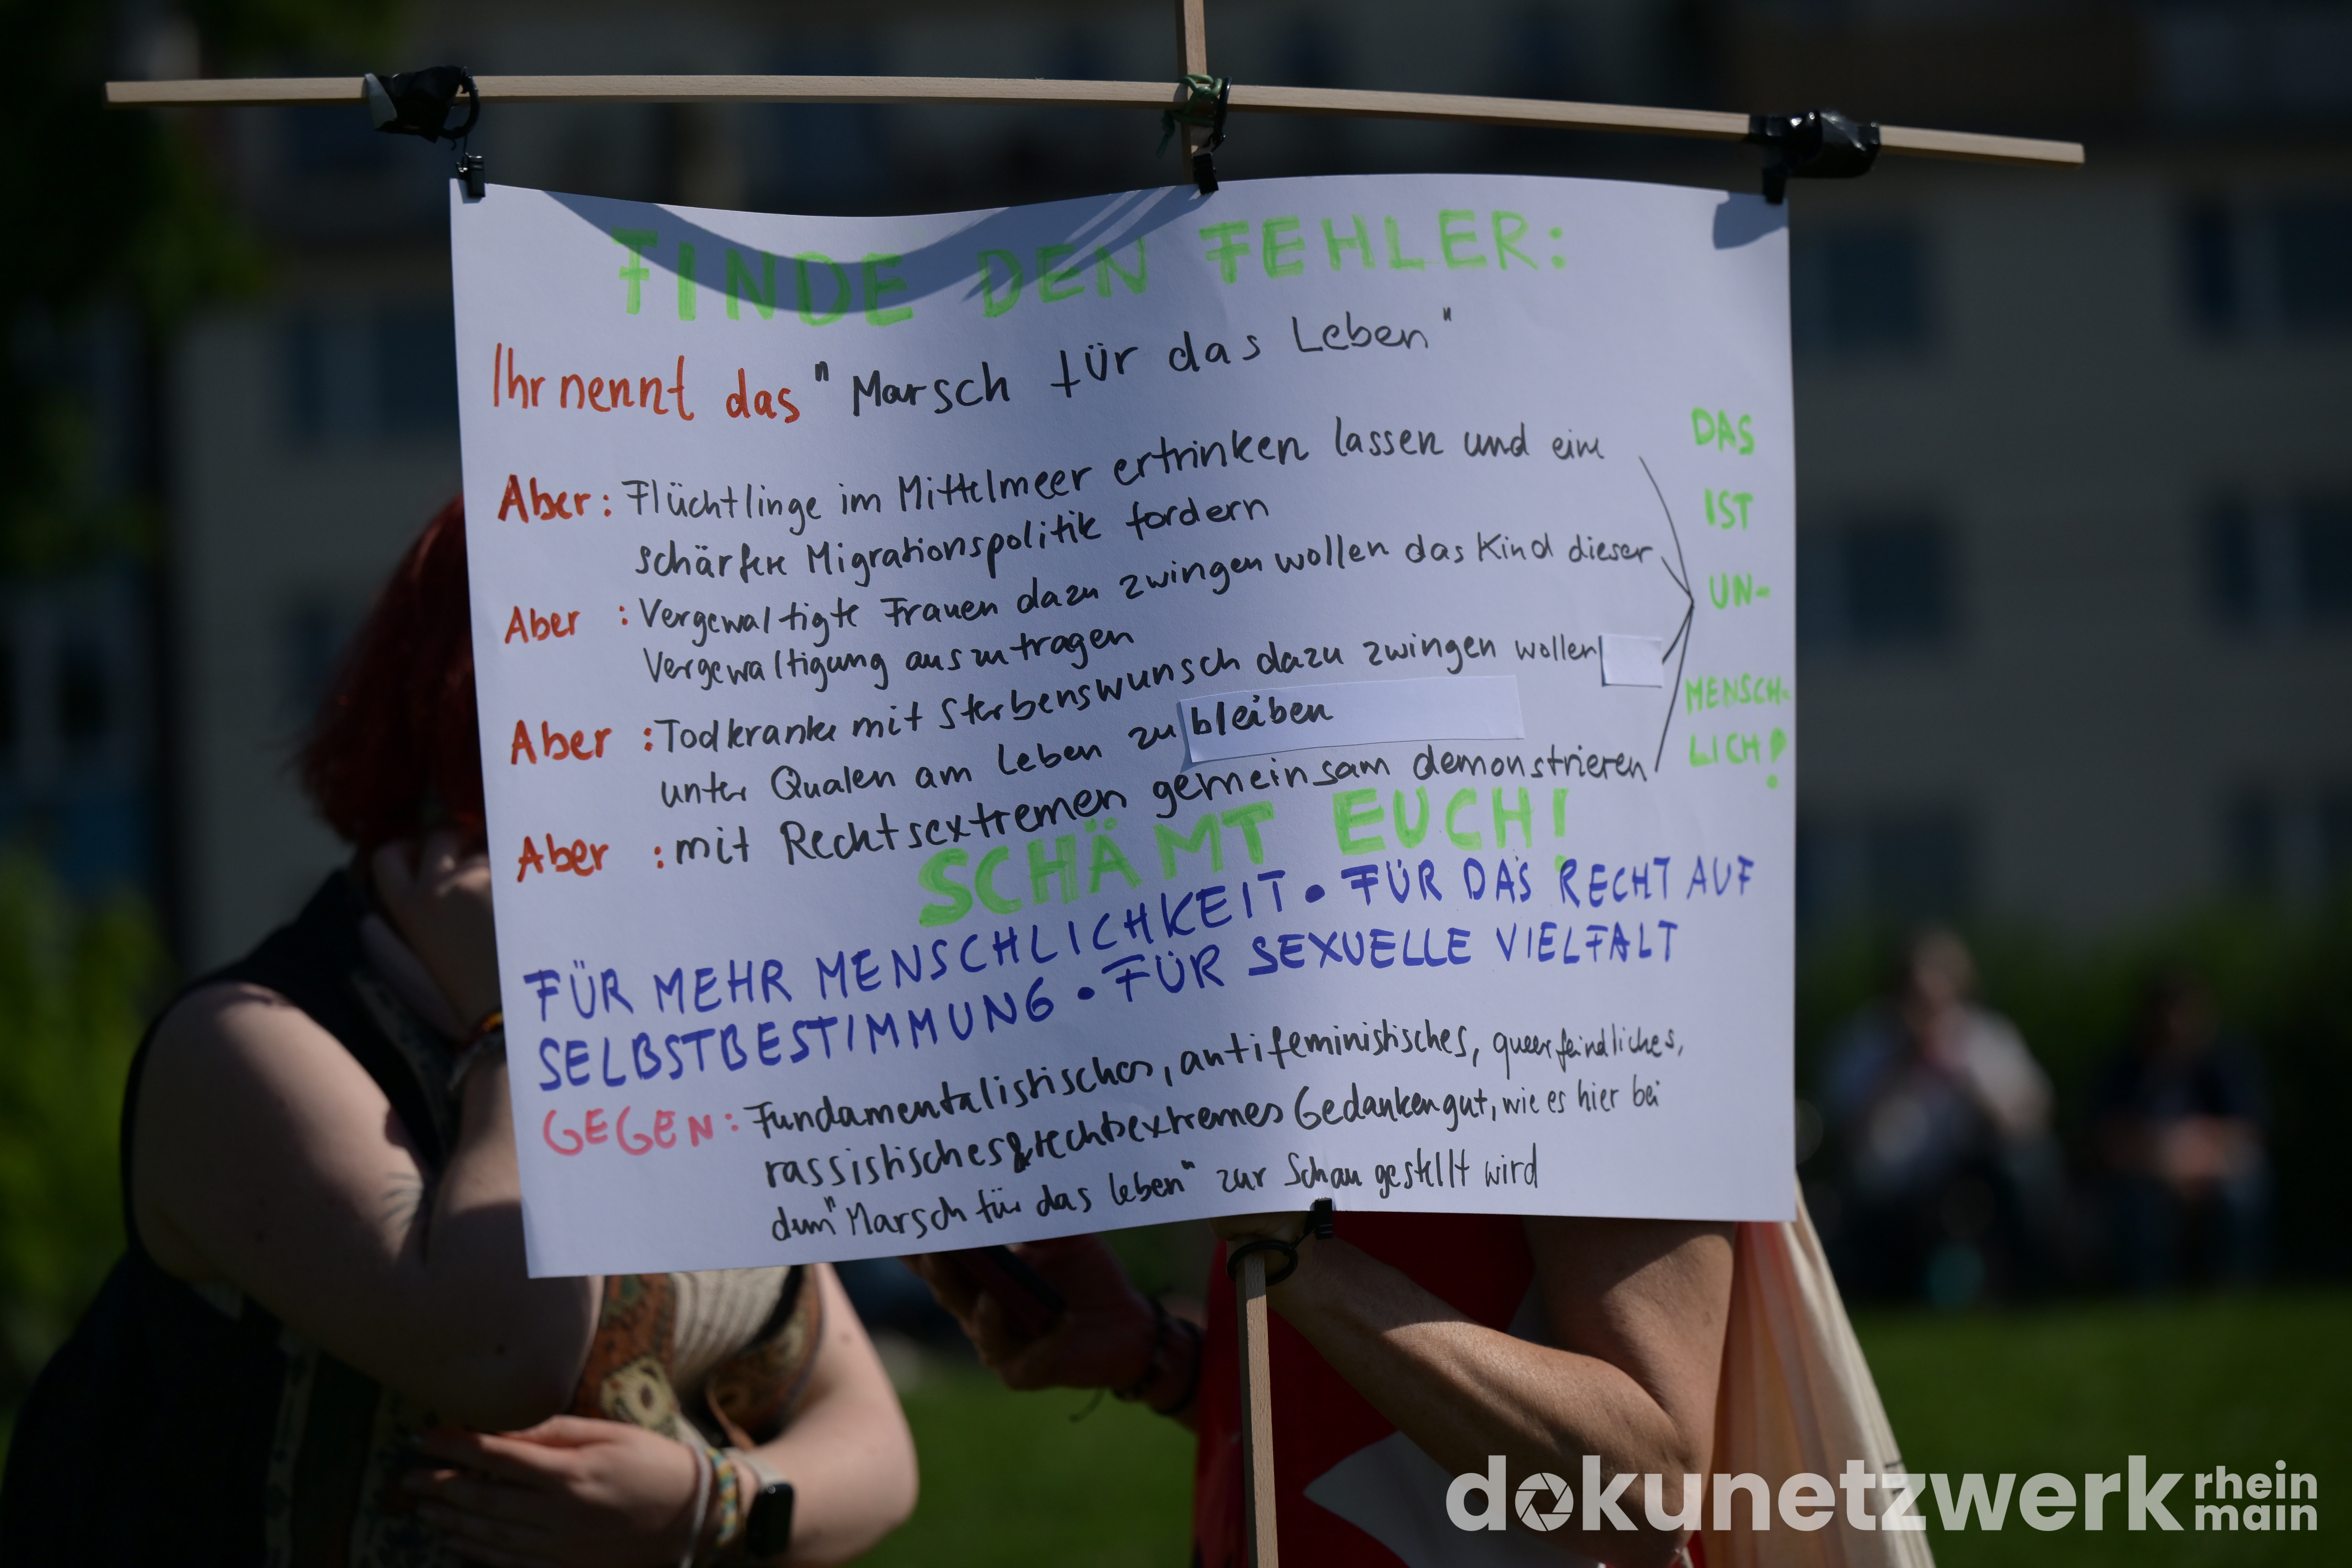 FINDE DEN FEHLER:
Ihr nennt das "Marsch für das Leben"
Aber: Flüchtlinge im Mittelmeer ertrinken lassen und eine
schärfere Migrationspolitik fordern
Aber : Vergewaltigte Frauen dazu zwingen wollen das Kind dieser
Vergewaltigung auszutragen
Aber : Todkranke mit Sterbenswunsch dazu zwingen wollen
unter Qualen am Leben zu bleiben
Aber : mit Rechtsextremen gemeinsam demonstrieren
DAS
IST
UN-
MENSCH-
LICH!
SCHÄMT EUCH!
FÜR MEHR MENSCHLICHKEIT • FÜR DAS RECHT AUF
SELBSTBESTIMMUNG • FÜR SEXUELLE VIELFALT
GEGEN: Fundamentalistisches, antifeministisches, queerfeindliches,
rassistisches & rechtsextremes Gedankengut, wie es hier bei
dem "Marsch für das Leben" zur Schau gestellt wird
dokunetzwerk rhein
main